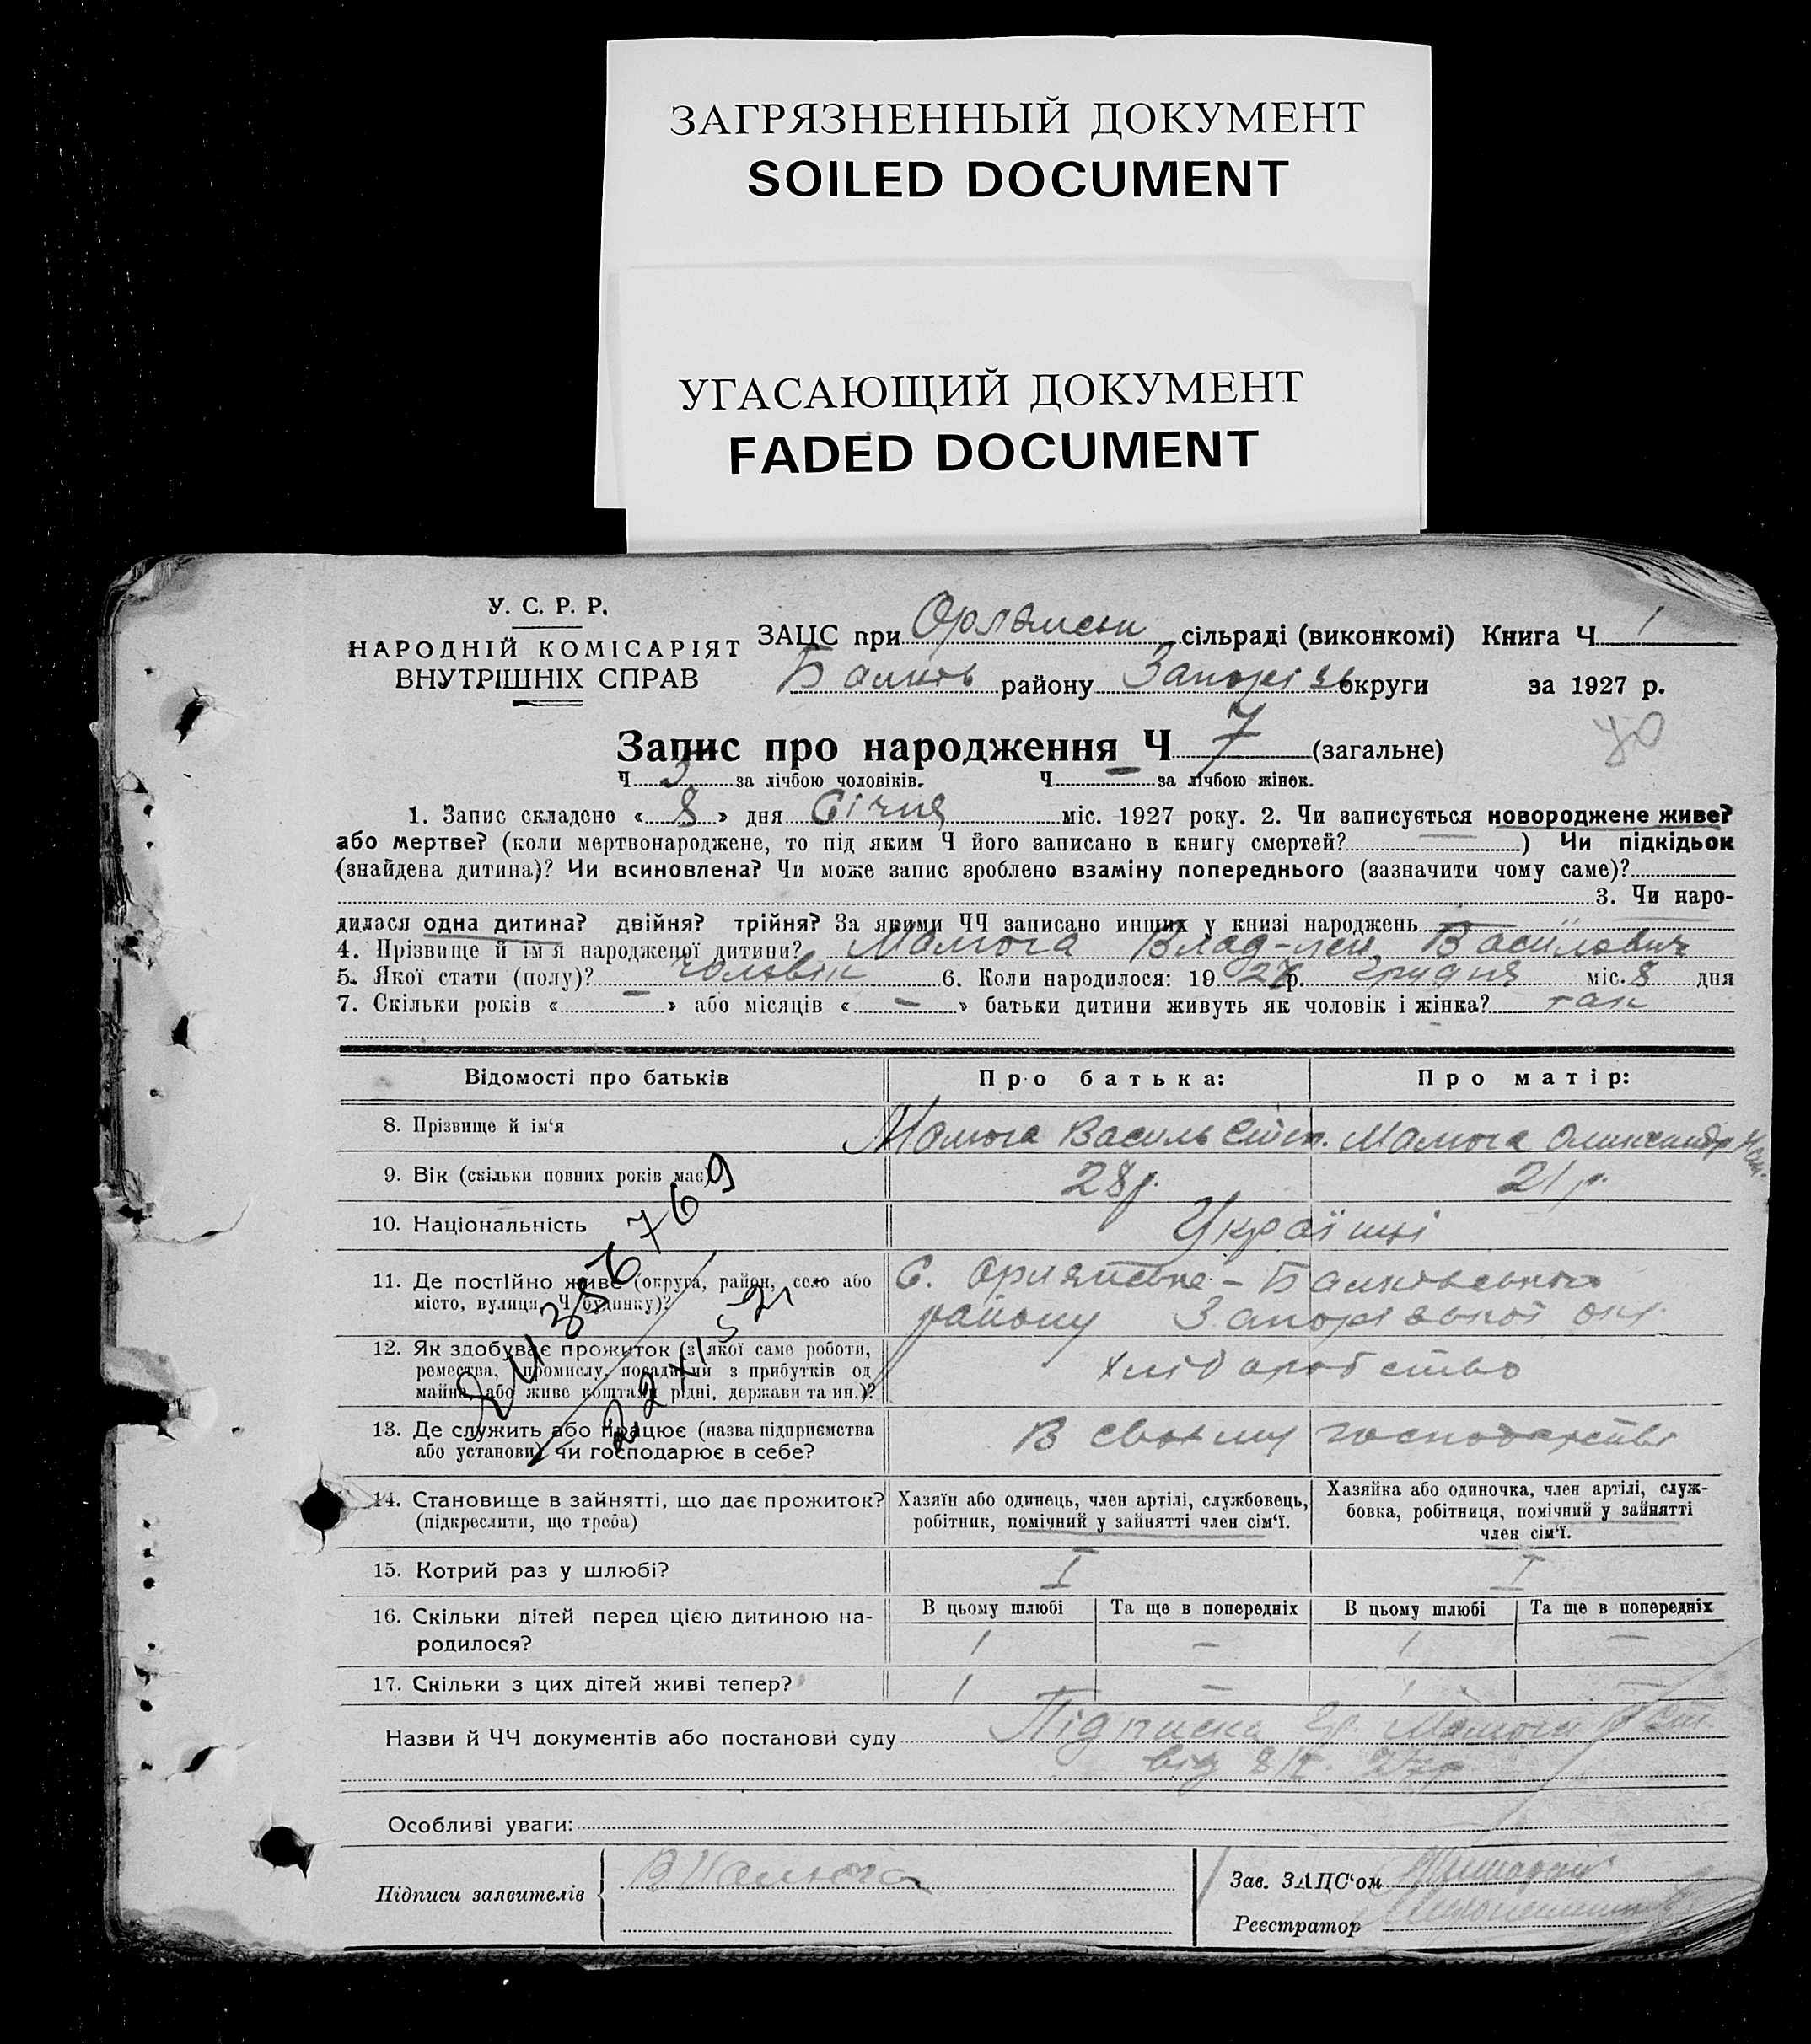 ЗАГРЯЗНЕННЫЙ ДОКУМЕНТ
SOILED DOCUMENT
УГАСАЮЩИЙ ДОКУМЕНТ
FADED DOCUMENT
У. С. Р. Р.
НАРОДНІЙ КОМІСАРІЯТ
ВНУТРІШНІХ СПРАВ
ЗАЦС при Орлянськ сільраді (виконкомі) Книга Ч 1
Балків району Запоріз округи за 1927 р.
Запис про народження Ч 7 (загальне)
40
Ч 3 за лічбою чоловіків. Ч — за лічбою жінок.
1. Запис складено « 8 » дня Січня міс. 1927 року. 2. Чи записується новороджене живе?
або мертве? (коли мертвонароджене, то під яким Ч його записано в книгу смертей? ) Чи підкідьок
(знайдена дитина)? Чи всиновлена? Чи може запис зроблено взаміну попереднього (зазначити чому саме)?
3. Чи наро-
дилася одна дитина? двійня? трійня? За якими ЧЧ записано инших у книзі народжень —
4. Прізвище й ім'я народженої дитини? Малюга Влад-лен Васильович
5. Якої стати (полу)? чоловік 6. Коли народилося: 19 26 р. грудня міс. 8 дня
7. Скільки років « — » або місяців « — » батьки дитини живуть як чоловік і жінка? так
Відомості про батьків Про батька: Про матір:
8. Прізвище й ім‘я Малюга Василь Степ. Малюга Олександр
9. Вік (скільки повних років має) 28 р. 21 р.
10. Національність Українці
11. Де постійно живе (округа, район, село або С. Орлянське – Балківського
місто, вулиця, Ч будинку)? району Запорізької окр.
12. Як здобуває прожиток (з якої саме роботи,
ремества, промислу, посади чи з прибутків од хліборобство
майна, або живе коштами рідні, держави та ин.)?
13. Де служить або працює (назва підприємства В своему господарстві
або установи) чи господарює в себе?
14. Становище в зайнятті, що дає прожиток?
(підкреслити, що треба)
Хазяїн або одинець, член артілі, службовець,
робітник, помічний у зайнятті член сім‘ї.
Хазяйка або одиночка, член артілі, служ-
бовка, робітниця, помічний у зайнятті
член сім‘ї.
15. Котрий раз у шлюбі? I I
16. Скільки дітей перед цією дитиною на-
родилося?
В цьому шлюбі Та ще в попередніх В цьому шлюбі Та ще в попередніх
1 — 1 —
17. Скільки з цих дітей живі тепер? 1 — 1 —
Назви й ЧЧ документів або постанови суду Підписка гр. Малюги
від 8/I. 27р.
Особливі уваги:
Підписи заявителів В Малюга
Зав. ЗАЦС‘ом
Реєстратор